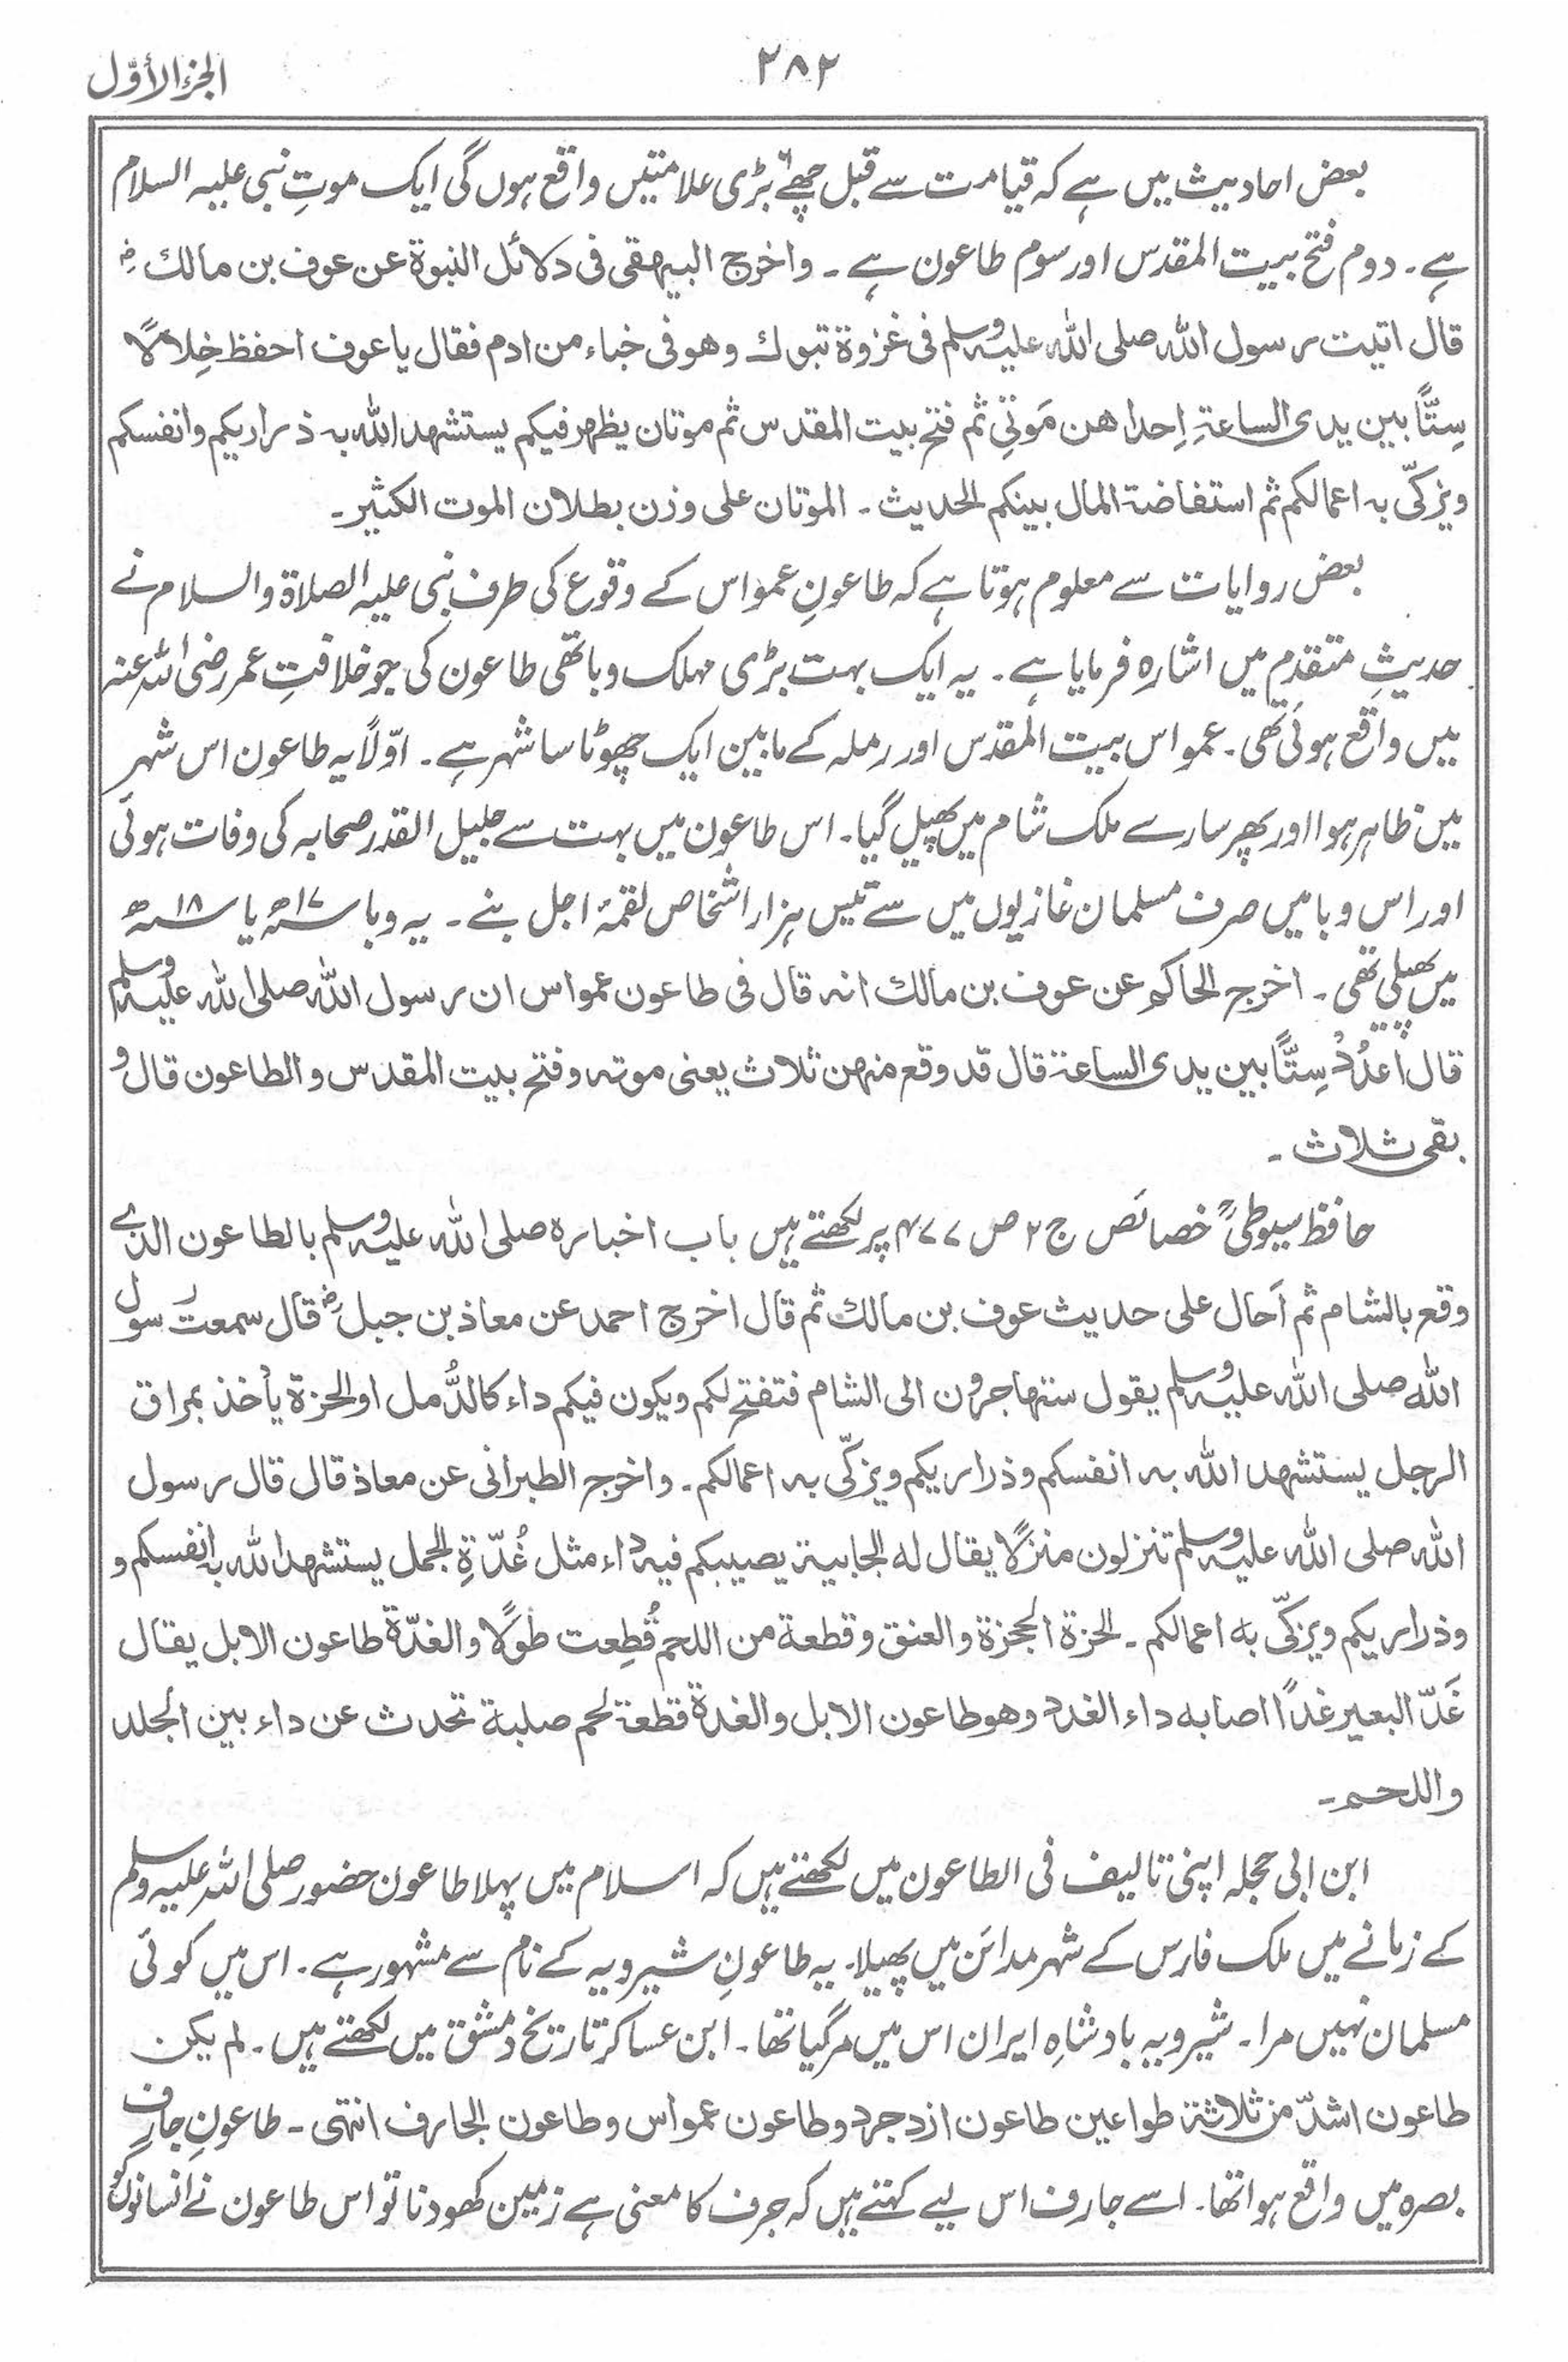 ۲۸۲
الجزء الأوّل
بعض احادیث میں ہے کہ قیامت سے قبل چھے بڑی علامتیں واقع ہوں گی ایک موتِ نبی علیہ السلام
ہے۔ دوم فتح بیت المقدس اور سوم طاعون ہے۔ واخرج البیہقی فی دلائل النبوة عن عوف بن مالك رض
قال اتیت رسول الله صلی الله علیہ وسلم فی غزوة تبوك وهو فی خباء من ادم فقال یا عوف احفظ خِلالاً
سِتًّا بین یدی الساعةِ اِحداهن مَوتی ثم فتح بیت المقدس ثم موتان یظهر فیکم یستشهد الله به ذراریکم وانفسکم
ویزکّی به اعمالکم ثم استفاضة المال بینکم الحدیث۔ الموتان علی وزن بطلان الموت الکثیر۔
بعض روایات سے معلوم ہوتا ہے کہ طاعونِ عمواس کے وقوع کی طرف نبی علیہ الصلاة والسلام نے
حدیثِ متقدم میں اشارہ فرمایا ہے۔ یہ ایک بہت بڑی مہلک وبا تھی طاعون کی جو خلافتِ عمر رضی اللہ عنہ
میں واقع ہوئی تھی۔ عمواس بیت المقدس اور رملہ کے مابین ایک چھوٹا سا شہر ہے۔ اوّلاً یہ طاعون اس شہر
میں ظاہر ہوا اور پھر سارے ملک شام میں پھیل گیا۔ اس طاعون میں بہت سے جلیل القدر صحابہ کی وفات ہوئی
اور اس وبا میں صرف مسلمان غازیوں میں سے تیس ہزار اشخاص لقمۂ اجل بنے۔ یہ وبا ۱۷ھ یا ۱۸ھ
میں پھیلی تھی۔ اخرج الحاکم عن عوف بن مالك انه قال فی طاعون عمواس ان رسول الله صلی الله علیہ وسلم
قال اُعدُدْ سِتًّا بین یدی الساعة قال قد وقع منهن ثلاث یعنی موته وفتح بیت المقدس والطاعون قال و
بقی ثلاث۔
حافظ سیوطیؒ خصائص ج ۲ ص ۴۷۷ پر لکھتے ہیں باب اخباره صلی الله علیہ وسلم بالطاعون الذی
وقع بالشام ثم اَحال علی حدیث عوف بن مالك ثم قال اخرج احمد عن معاذ بن جبل رض قال سمعت رسول
الله صلی الله علیہ وسلم یقول ستهاجرون الی الشام فتفتح لکم ویکون فیکم داء کالدُّمل او الحزة یأخذ بمراق
الرجل یستشهد الله به انفسکم وذراریکم ویزکّی به اعمالکم۔ واخرج الطبرانی عن معاذ قال قال رسول
الله صلی الله علیہ وسلم تنزلون منزلًا یقال له الجابیة یصیبکم فیه داء مثل غُدّةِ الجمل یستشهد الله به انفسکم و
وذراریکم ویزکّی به اعمالکم۔ الحزة الحجزة والعنق وقطعة من اللحم قُطِعت طولًا والغدّة طاعون الابل یقال
غَدّ البعیر غدًا اصابه داء الغدد وهو طاعون الابل والغدة قطعة لحم صلبة تحدث عن داء بین الجلد
واللحم۔
ابن ابی حجلہ اپنی تالیف فی الطاعون میں لکھتے ہیں کہ اسلام میں پہلا طاعون حضور صلی اللہ علیہ وسلم
کے زمانے میں ملک فارس کے شہر مدائن میں پھیلا۔ یہ طاعونِ شیرویہ کے نام سے مشہور ہے۔ اس میں کوئی
مسلمان نہیں مرا۔ شیرویہ بادشاہِ ایران اس میں مر گیا تھا۔ ابن عساکر تاریخ دمشق میں لکھتے ہیں۔ لم یکن
طاعون اشدّ من ثلاثة طواعین طاعون ازدجرد وطاعون عمواس وطاعون الجارف انتهی۔ طاعونِ جارف
بصرہ میں واقع ہوا تھا۔ اسے جارف اس لیے کہتے ہیں کہ جرف کا معنی ہے زمین کھودنا تو اس طاعون نے انسانوں کو